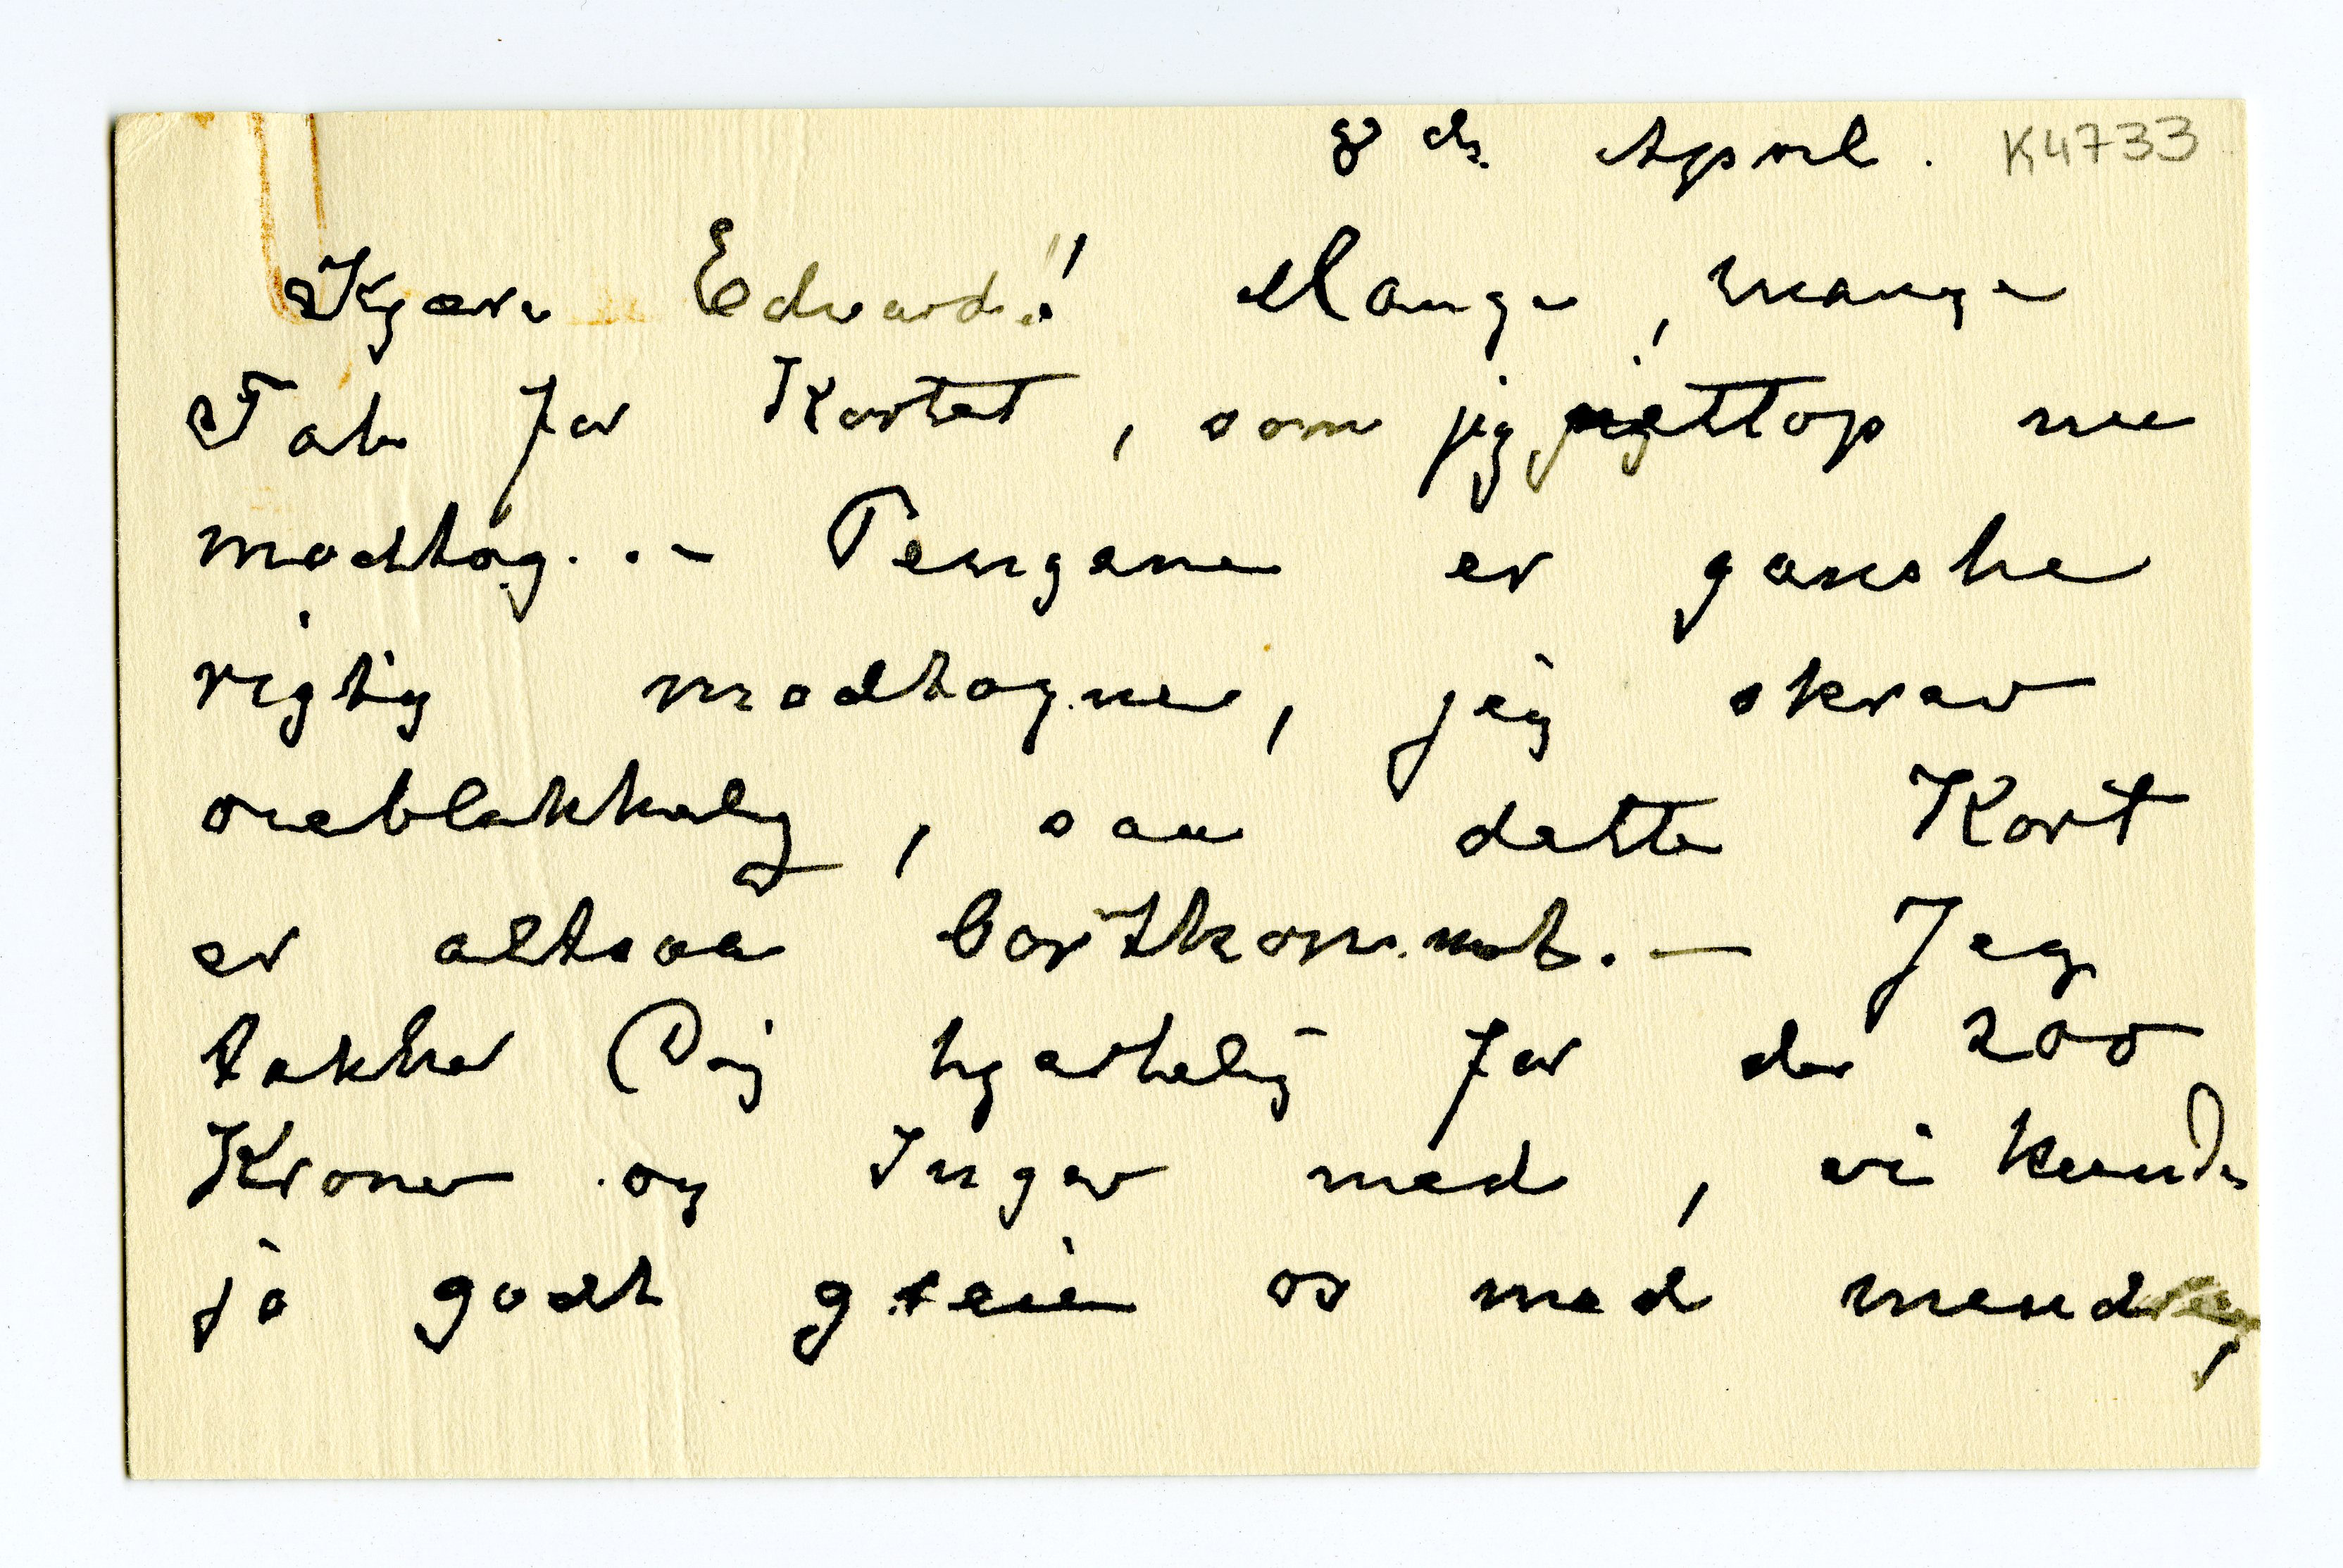 8 de April. K4733
Kjære Edvard! Mange, mange
Tak for Kortet, som jeg nettop nu
modtog. – Pengene er ganske
rigtig modtagne, jeg skrev
øieblikkelig, saa dette Kort
er altsaa bortkommet. – Jeg
takker Dig hjertelig for de 200
Kroner og Inger med, vi kunde
jo godt greie os med mindre,